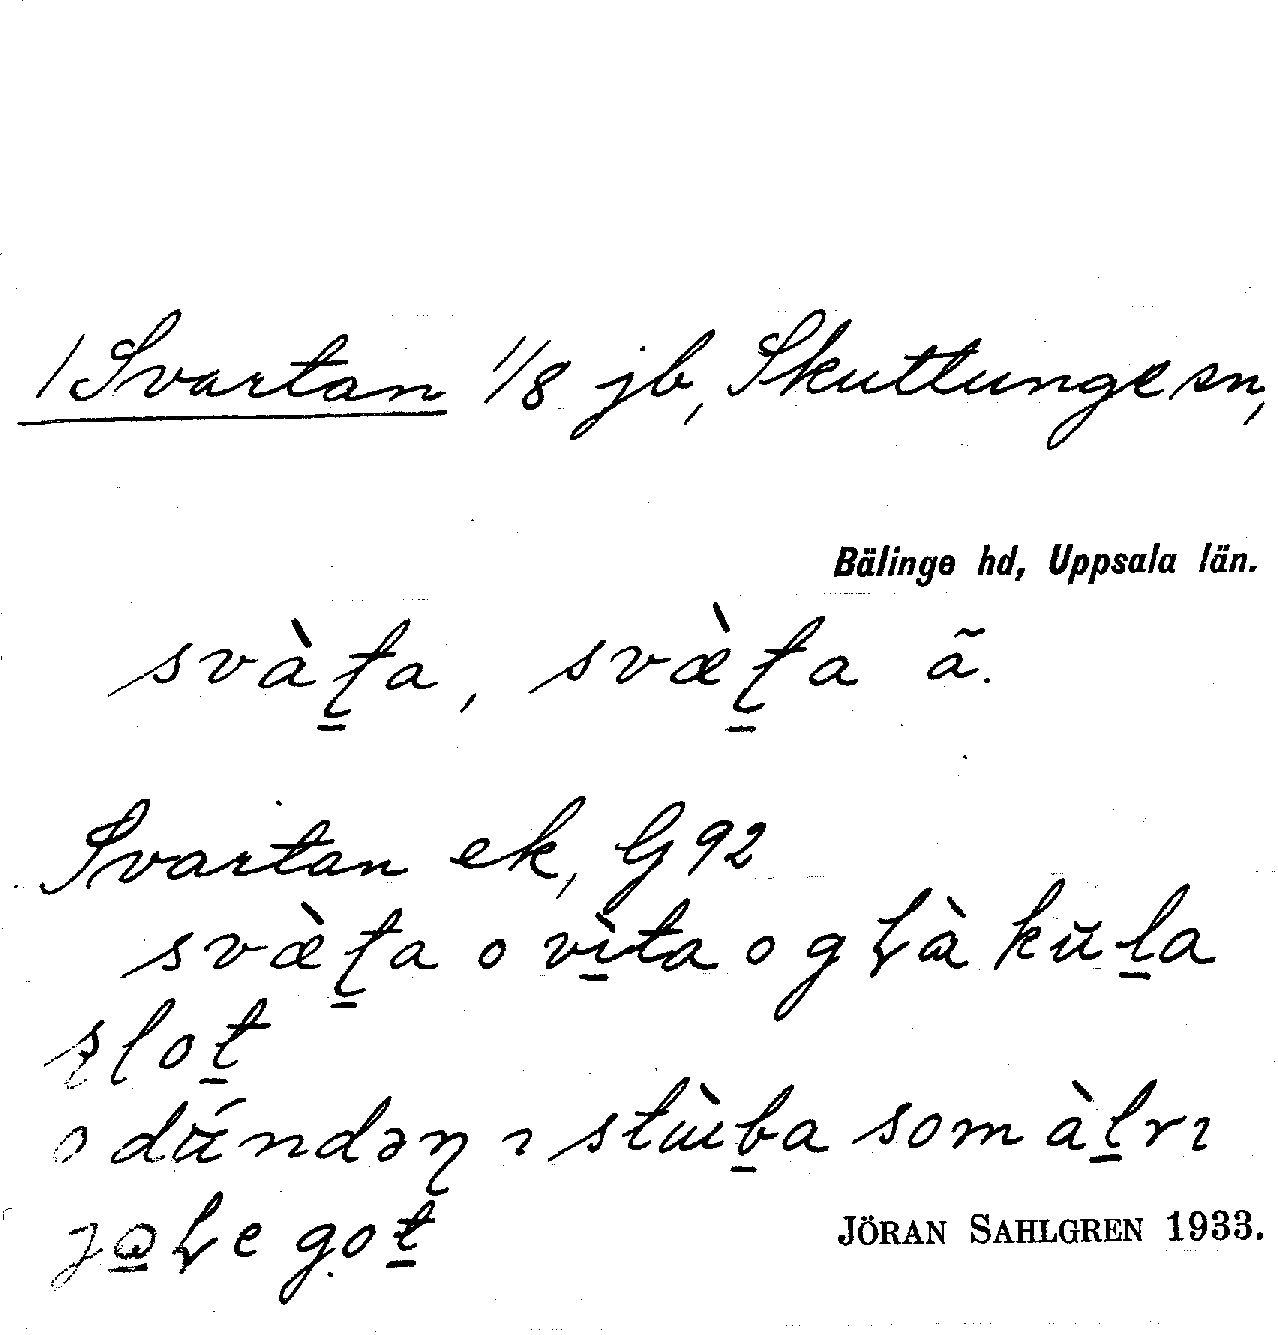 / Svartan 1/8 jb, Skuttunge sn,
Bälinge hd, Uppsala län.
svàṯa, svæ̀ṯa ã.
Svartan ek, G 92
svæ̀ṯa o vì̠ta o gɫà kŭḻa
sloṯ
som àḻrı
goṯ
JÖRAN SAHLGREN 1933.